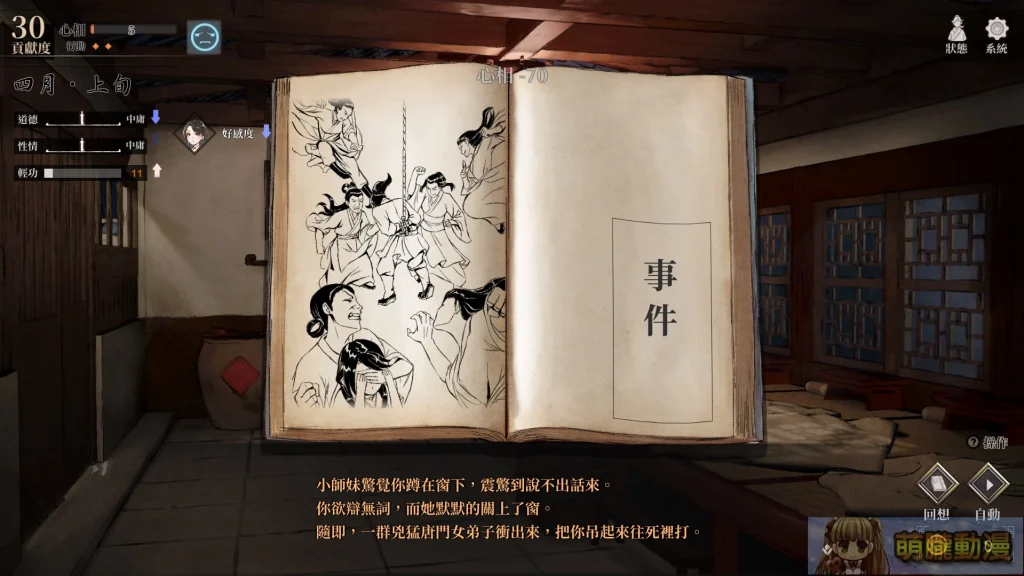 30
貢獻度
心相 5
行動
四月·上旬
道德 中庸
性情 中庸
輕功 11
好感度
狀態
系統
心相 -70
事件
小師妹驚覺你蹲在窗下，震驚到說不出話來。
你欲辯無詞，而她默默的關上了窗。
隨即，一群兇猛唐門女弟子衝出來，把你吊起來往死裡打。
? 操作
回想
自動
萌朧動漫